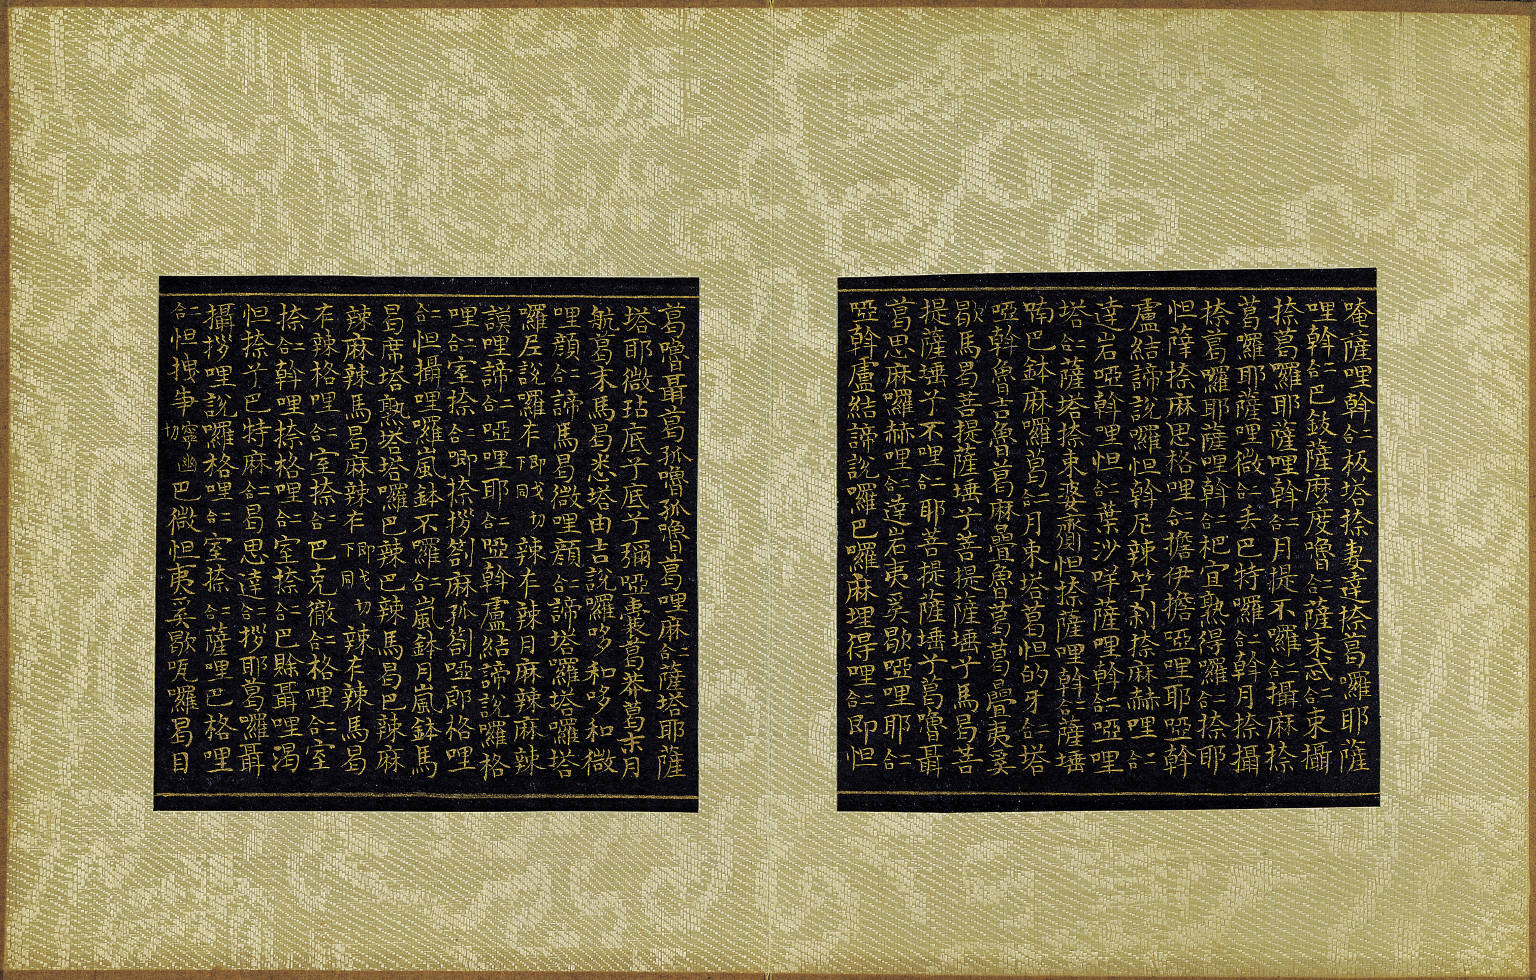 唵薩哩斡二合板塔捺妻達捺葛囉耶薩
哩斡二合巴鈸薩麼度嚕二合薩末忒二合束攝
捺葛囉耶薩哩斡二合月提不囉二合攝麻捺
葛囉耶薩哩微二合丢巴特囉二合斡月捺攝
捺葛囉耶薩哩斡二合杷宜熟得囉二合捺耶
怛薛捺麻思格哩二合擔伊擔啞哩耶啞斡
盧結諦說囉怛斡尼辣竿刹捺麻赫哩二合
達岩啞斡哩怛二合葉沙咩薩哩斡二合啞哩
塔二合薩塔捺束婆齎怛捺薩哩斡二合薩埵
喃巴鉢麻囉葛二合月束塔葛怛的牙二合塔
啞斡魯吉魯葛麻疊魯葛葛疊夷奚
歇馬曷菩提薩埵兮菩提薩埵兮馬曷菩
提薩埵兮不哩二合耶菩提薩埵兮葛嚕聶
葛思麻囉赫哩二合達岩夷奚歇啞哩耶二合
啞斡盧結諦說囉巴囉麻理得哩二合即怛
葛嚕聶葛孤嚕孤嚕葛哩麻二合薩塔耶薩
塔耶微玷底兮底兮彌啞裹葛莽葛末月
航葛末馬曷悉塔由吉說囉哆和哆和微
哩顏二合諦馬曷微哩顏二合諦塔囉塔囉塔
囉尼說囉左即戈切下同辣左辣月麻辣麻辣
謨哩諦二合啞哩耶二合啞斡盧結諦說囉格
哩二合室捺二合唧捺拶劄麻孤劄啞郎格哩
二合怛攝哩囉嵐鉢不囉二合嵐鉢月嵐鉢馬
曷席塔熟塔塔囉巴辣巴辣馬曷巴辣麻
辣麻辣馬曷麻辣左即戈切下同辣左辣馬曷
左辣格哩二合室捺二合巴克徹二合格哩二合室
捺二合斡哩捺格哩二合室捺二合巴賒聶哩渴
怛捺兮巴特麻二合曷思達二合拶耶葛囉聶
攝拶哩說囉格哩二合室捺二合薩哩巴格哩
二合怛拽事寧幽切巴微怛夷奚歇囉曷目